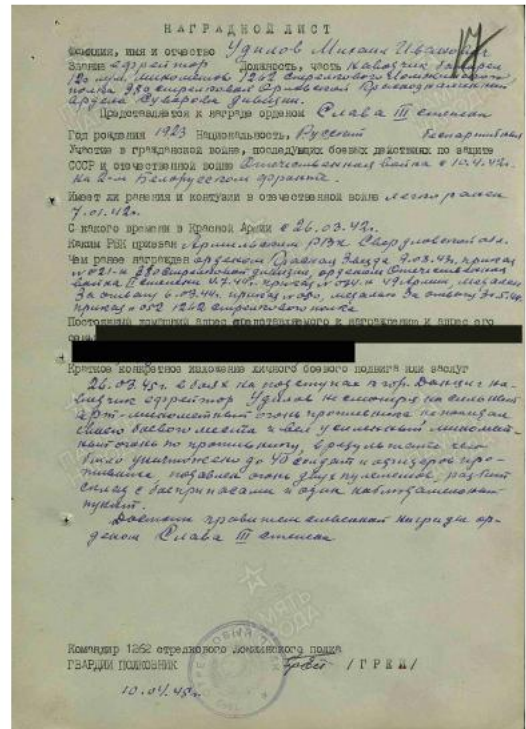 17
НАГРАДНОЙ ЛИСТ
Фамилия, имя и отчество Удилов Михаил Иванович
Звание ефрейтор Должность, часть Наводчик батареи
120 м/м. минометов 1262 стрелкового Ломжинского
полка 380 стрелковой Орловской Краснознаменной
ордена Суворова дивизии.
Представляется к награде орденом Слава III степени
Год рождения 1923 Национальность, Русский беспартийный
Участие в гражданской войне, последующих боевых действиях по защите
СССР и отечественной войне Отечественная война с 10.4.42г.
на 2-м Белорусском фронте.
Имеет ли ранения и контузии в отечественной войне легко ранен
7.01.42г.
С какого времени в Красной Армии с 26.03.42г.
Каким РВК призван РВК Свердловской обл.
Чем ранее награжден орденом Красная Звезда приказ
380 стрелковой дивизии, орденом Отечественная
война II степени приказ 49 Армии, медалью
За отвагу 6.03.44г. приказ медалью За отвагу
приказ № 052 1262 стрелкового полка
Постоянный домашний адрес представляемого к награждению и адрес его
семьи
Краткое конкретное изложение личного боевого подвига или заслуг
26.03.45г. в боях на подступах к гор. Данциг на-
водчик ефрейтор Удилов не смотря на сильный
арт-минометный огонь противника не покидал
своего боевого места и вел усиленный миномет-
ный огонь по противнику, в результате чего
было уничтожено до 40 солдат и офицеров про-
тивника, подавлен огонь двух пулеметов, разбит
склад с боеприпасами и один наблюдательный
пункт.
Достоин правительственной награды ор-
деном Слава III степени
ПАМЯТЬ
НАРОДА
Командир 1262 стрелкового Ломжинского полка
ГВАРДИИ ПОЛКОВНИК /ГРЕН/
10.04.45г.